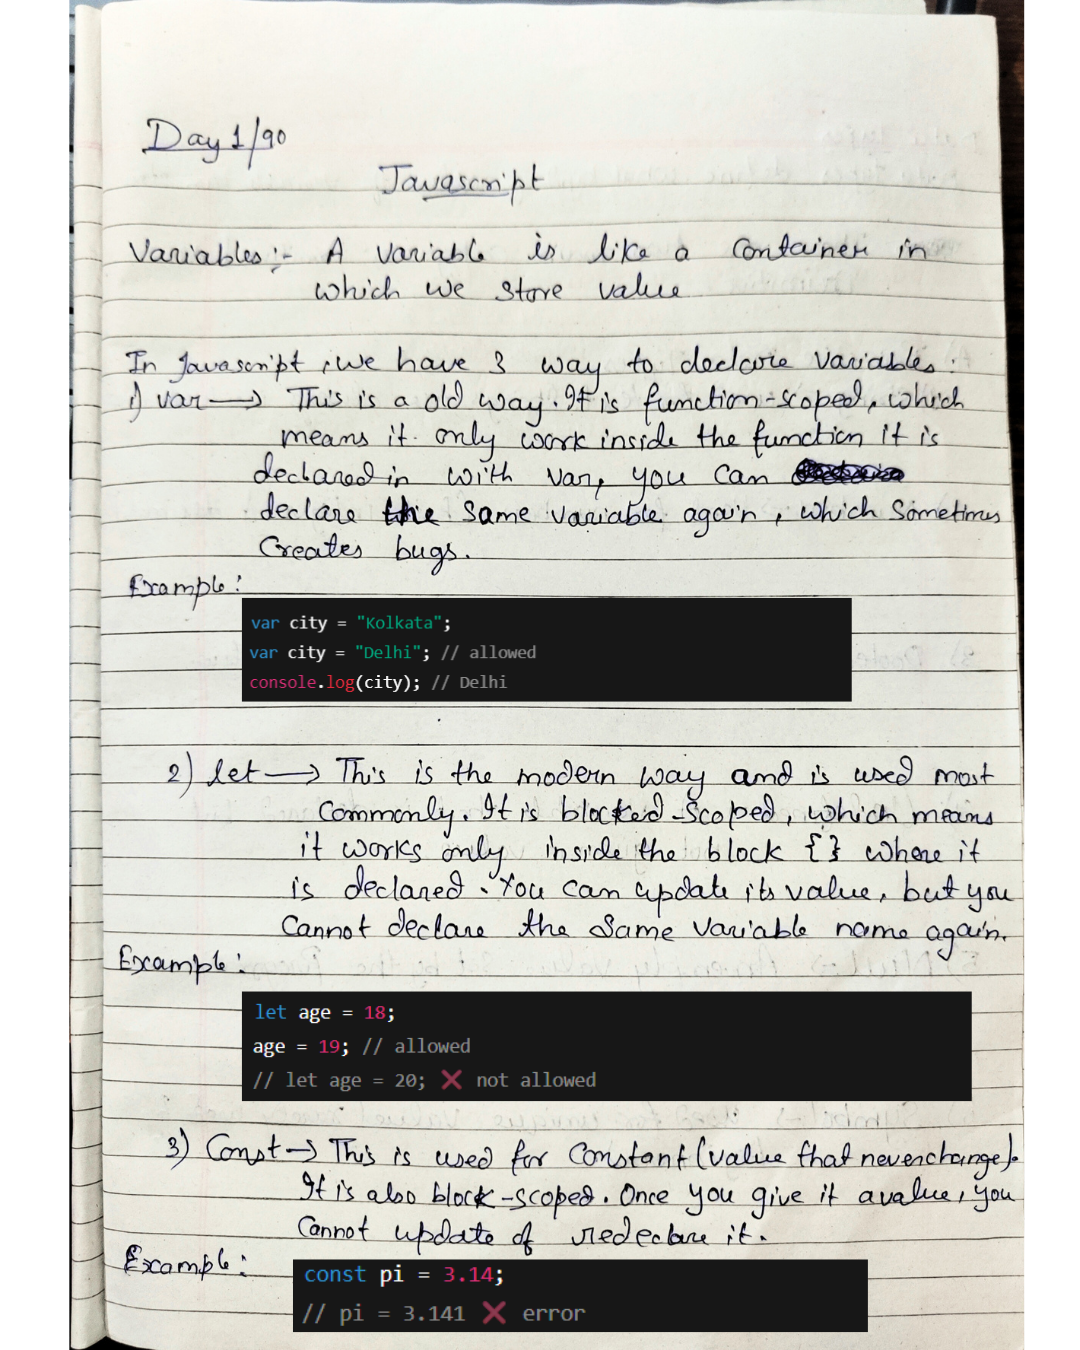 Day 1/90
Javascript
Variables:- A variable is like a container in
which we store value
In Javascript, we have 3 way to declare variables:
1) var → This is a old way. It is function-scoped, which
means it only work inside the function it is
declared in with var, you can
declare the same variable again, which Sometimes
Creates bugs.
Example:
var city = "Kolkata";
var city = "Delhi"; // allowed
console.log(city); // Delhi
2) let → This is the modern way and is used most
Commonly. It is blocked-scoped, which means
it works only inside the block {} where it
is declared. You can update its value, but you
Cannot declare the same variable name again.
Example:
let age = 18;
age = 19; // allowed
// let age = 20; ❌ not allowed
3) Const → This is used for Constant (value that never change).
It is also block-scoped. Once you give it a value, you
Cannot update of redeclare it.
Example:
const pi = 3.14;
// pi = 3.141 ❌ error